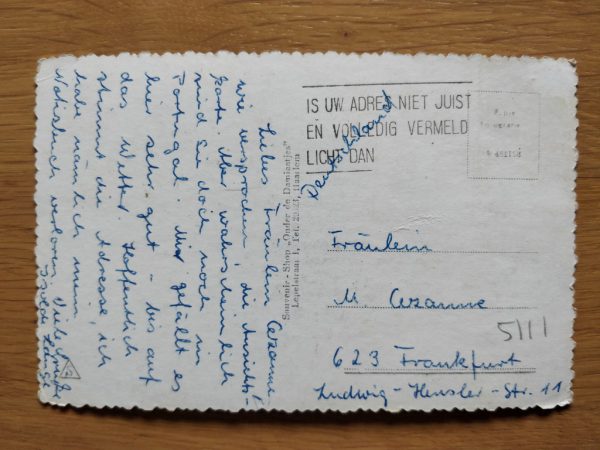 Liebes Fräulein Cezanne!
wie versprochen, die Ansichts-
karte. Aber wahrscheinlich
sind Sie doch noch in
Portugal. Mir gefällt es
hier sehr gut – bis auf
das Wetter. Hoffentlich
stimmt die Adresse, ich
habe nämlich mein
Notizbuch verloren. Viele Grüße
Isolde
Souvenir - Shop „Onder de Damiaatjes"
Lepelstraat 1, Tel. Haarlem
IS UW ADRES NIET JUIST
EN VOLLEDIG VERMELD
LICHT DAN
Deutschland
Fräulein
M. Cezanne
5111
623 Frankfurt
Ludwig-Hensler-Str. 11